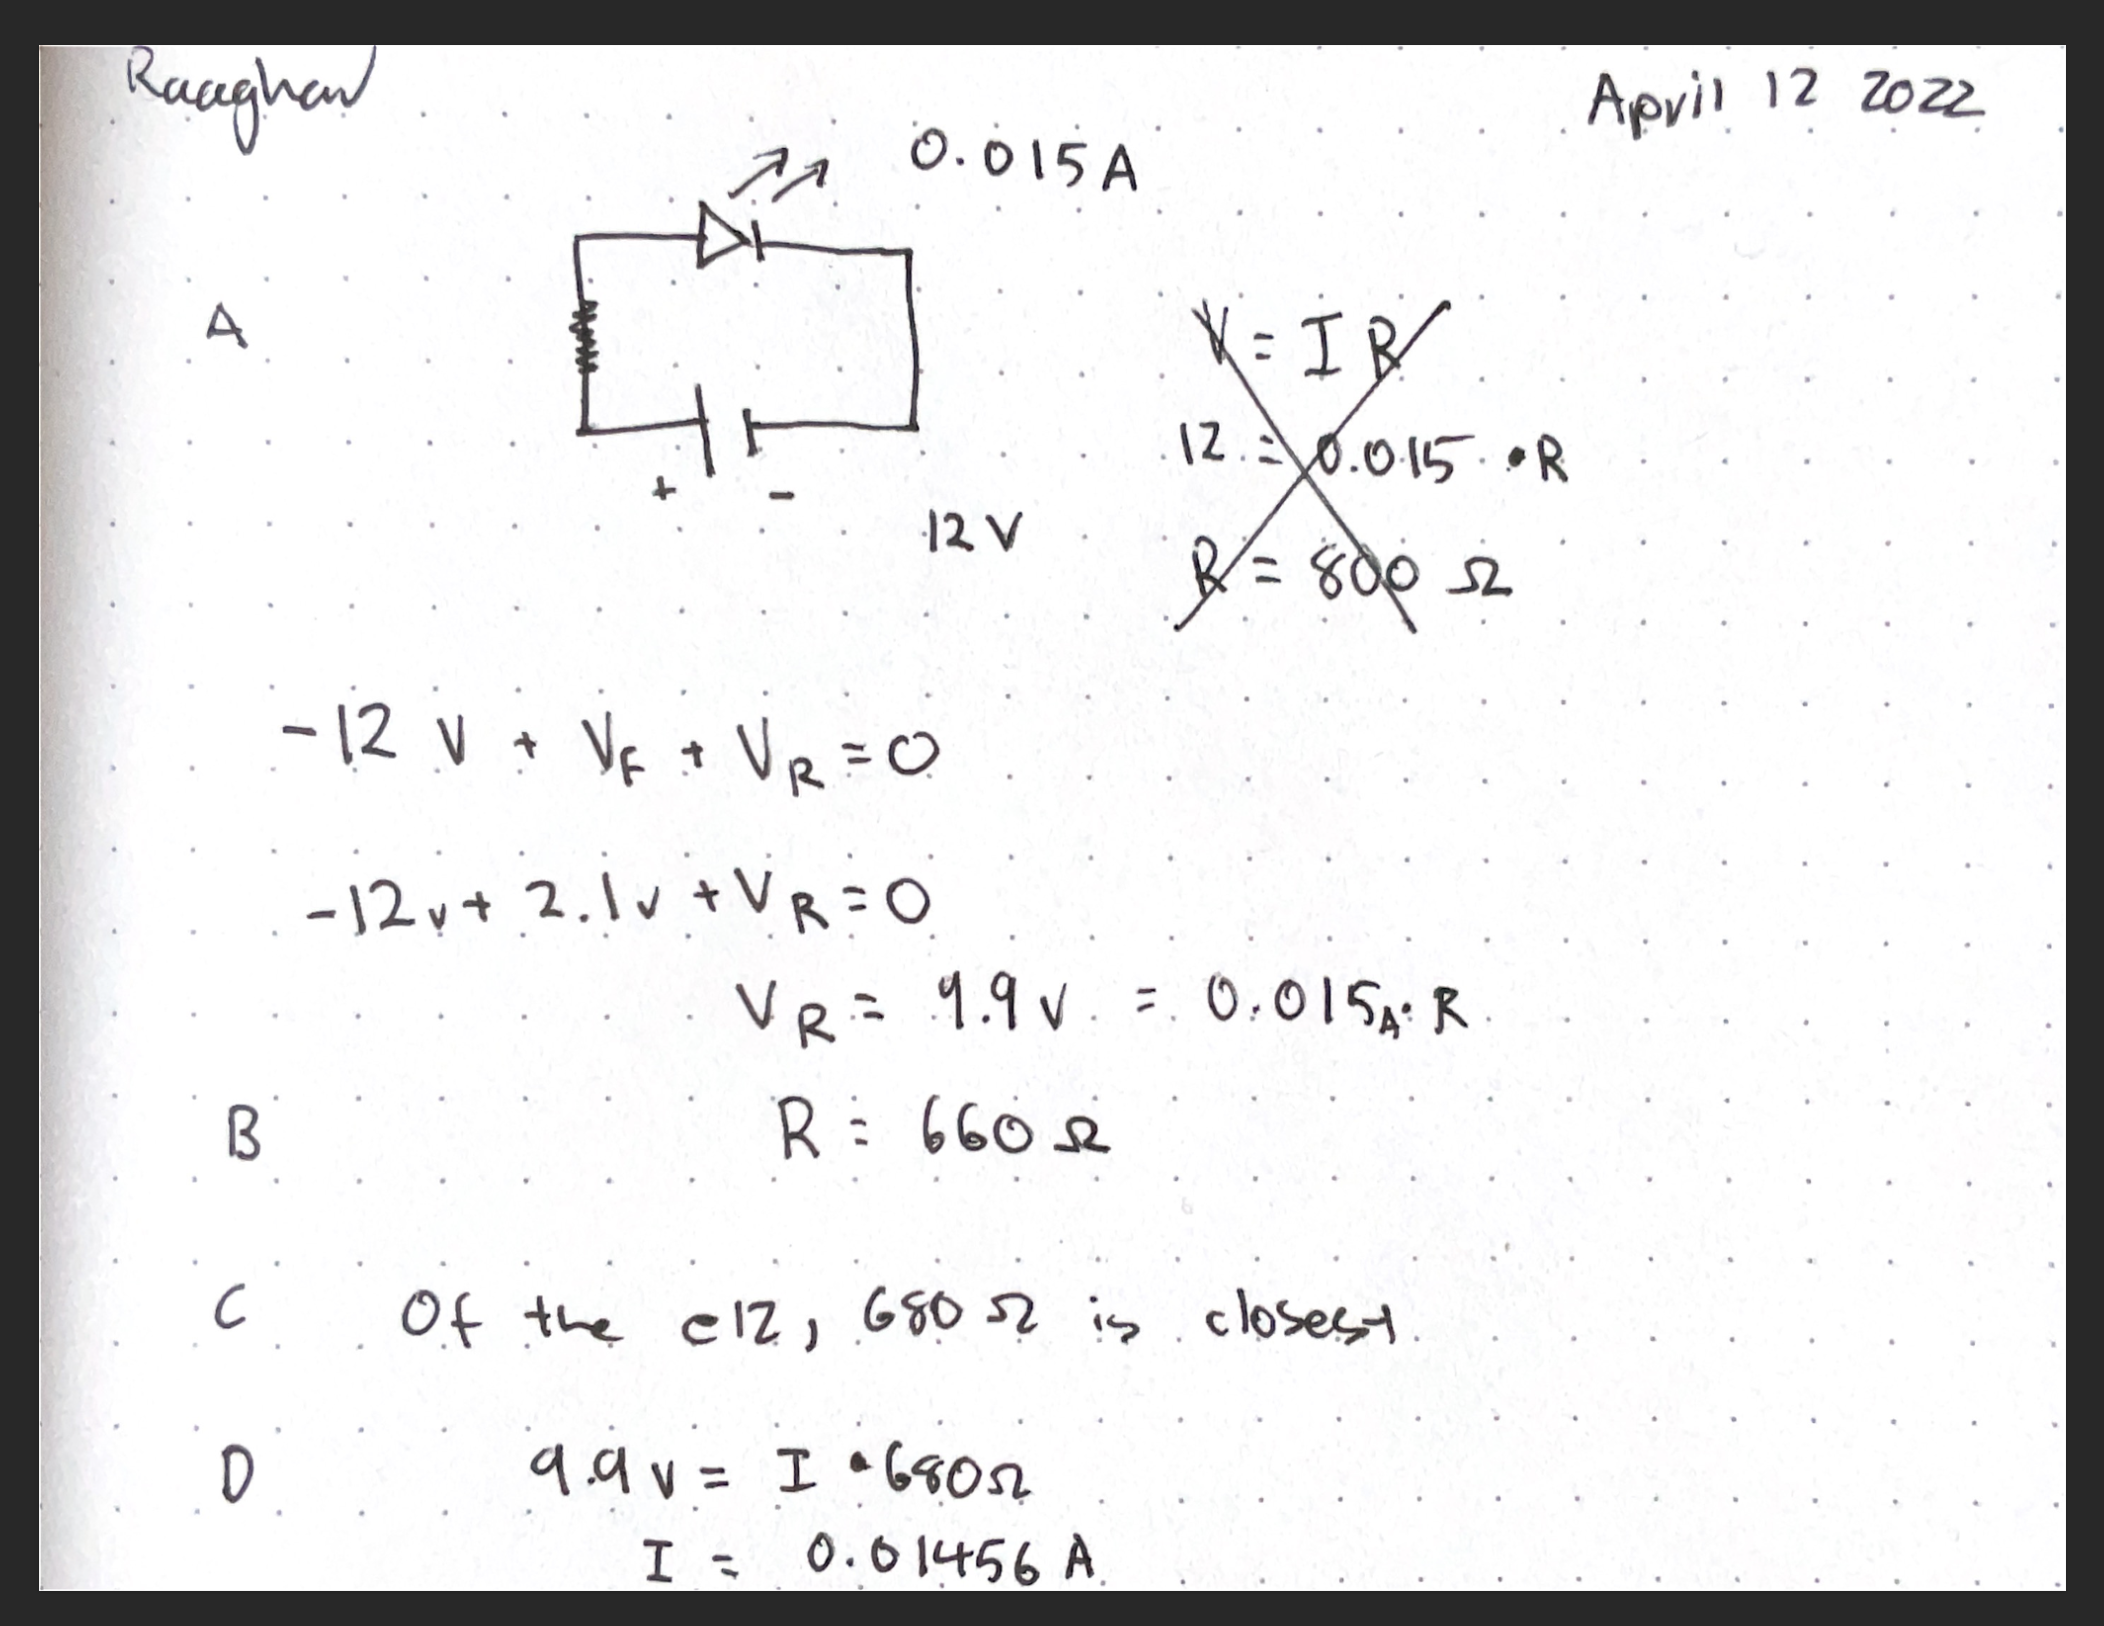 Raaghav
April 12 2022
0.015A
A
+ -
12V
V = IR
12 = 0.015 • R
R = 800 Ω
-12 V + VF + VR = 0
-12v + 2.1v + VR = 0
VR = 9.9v = 0.015A • R
B R = 660 Ω
C Of the e12, 680 Ω is closest
D 9.9v = I • 680Ω
I = 0.01456 A